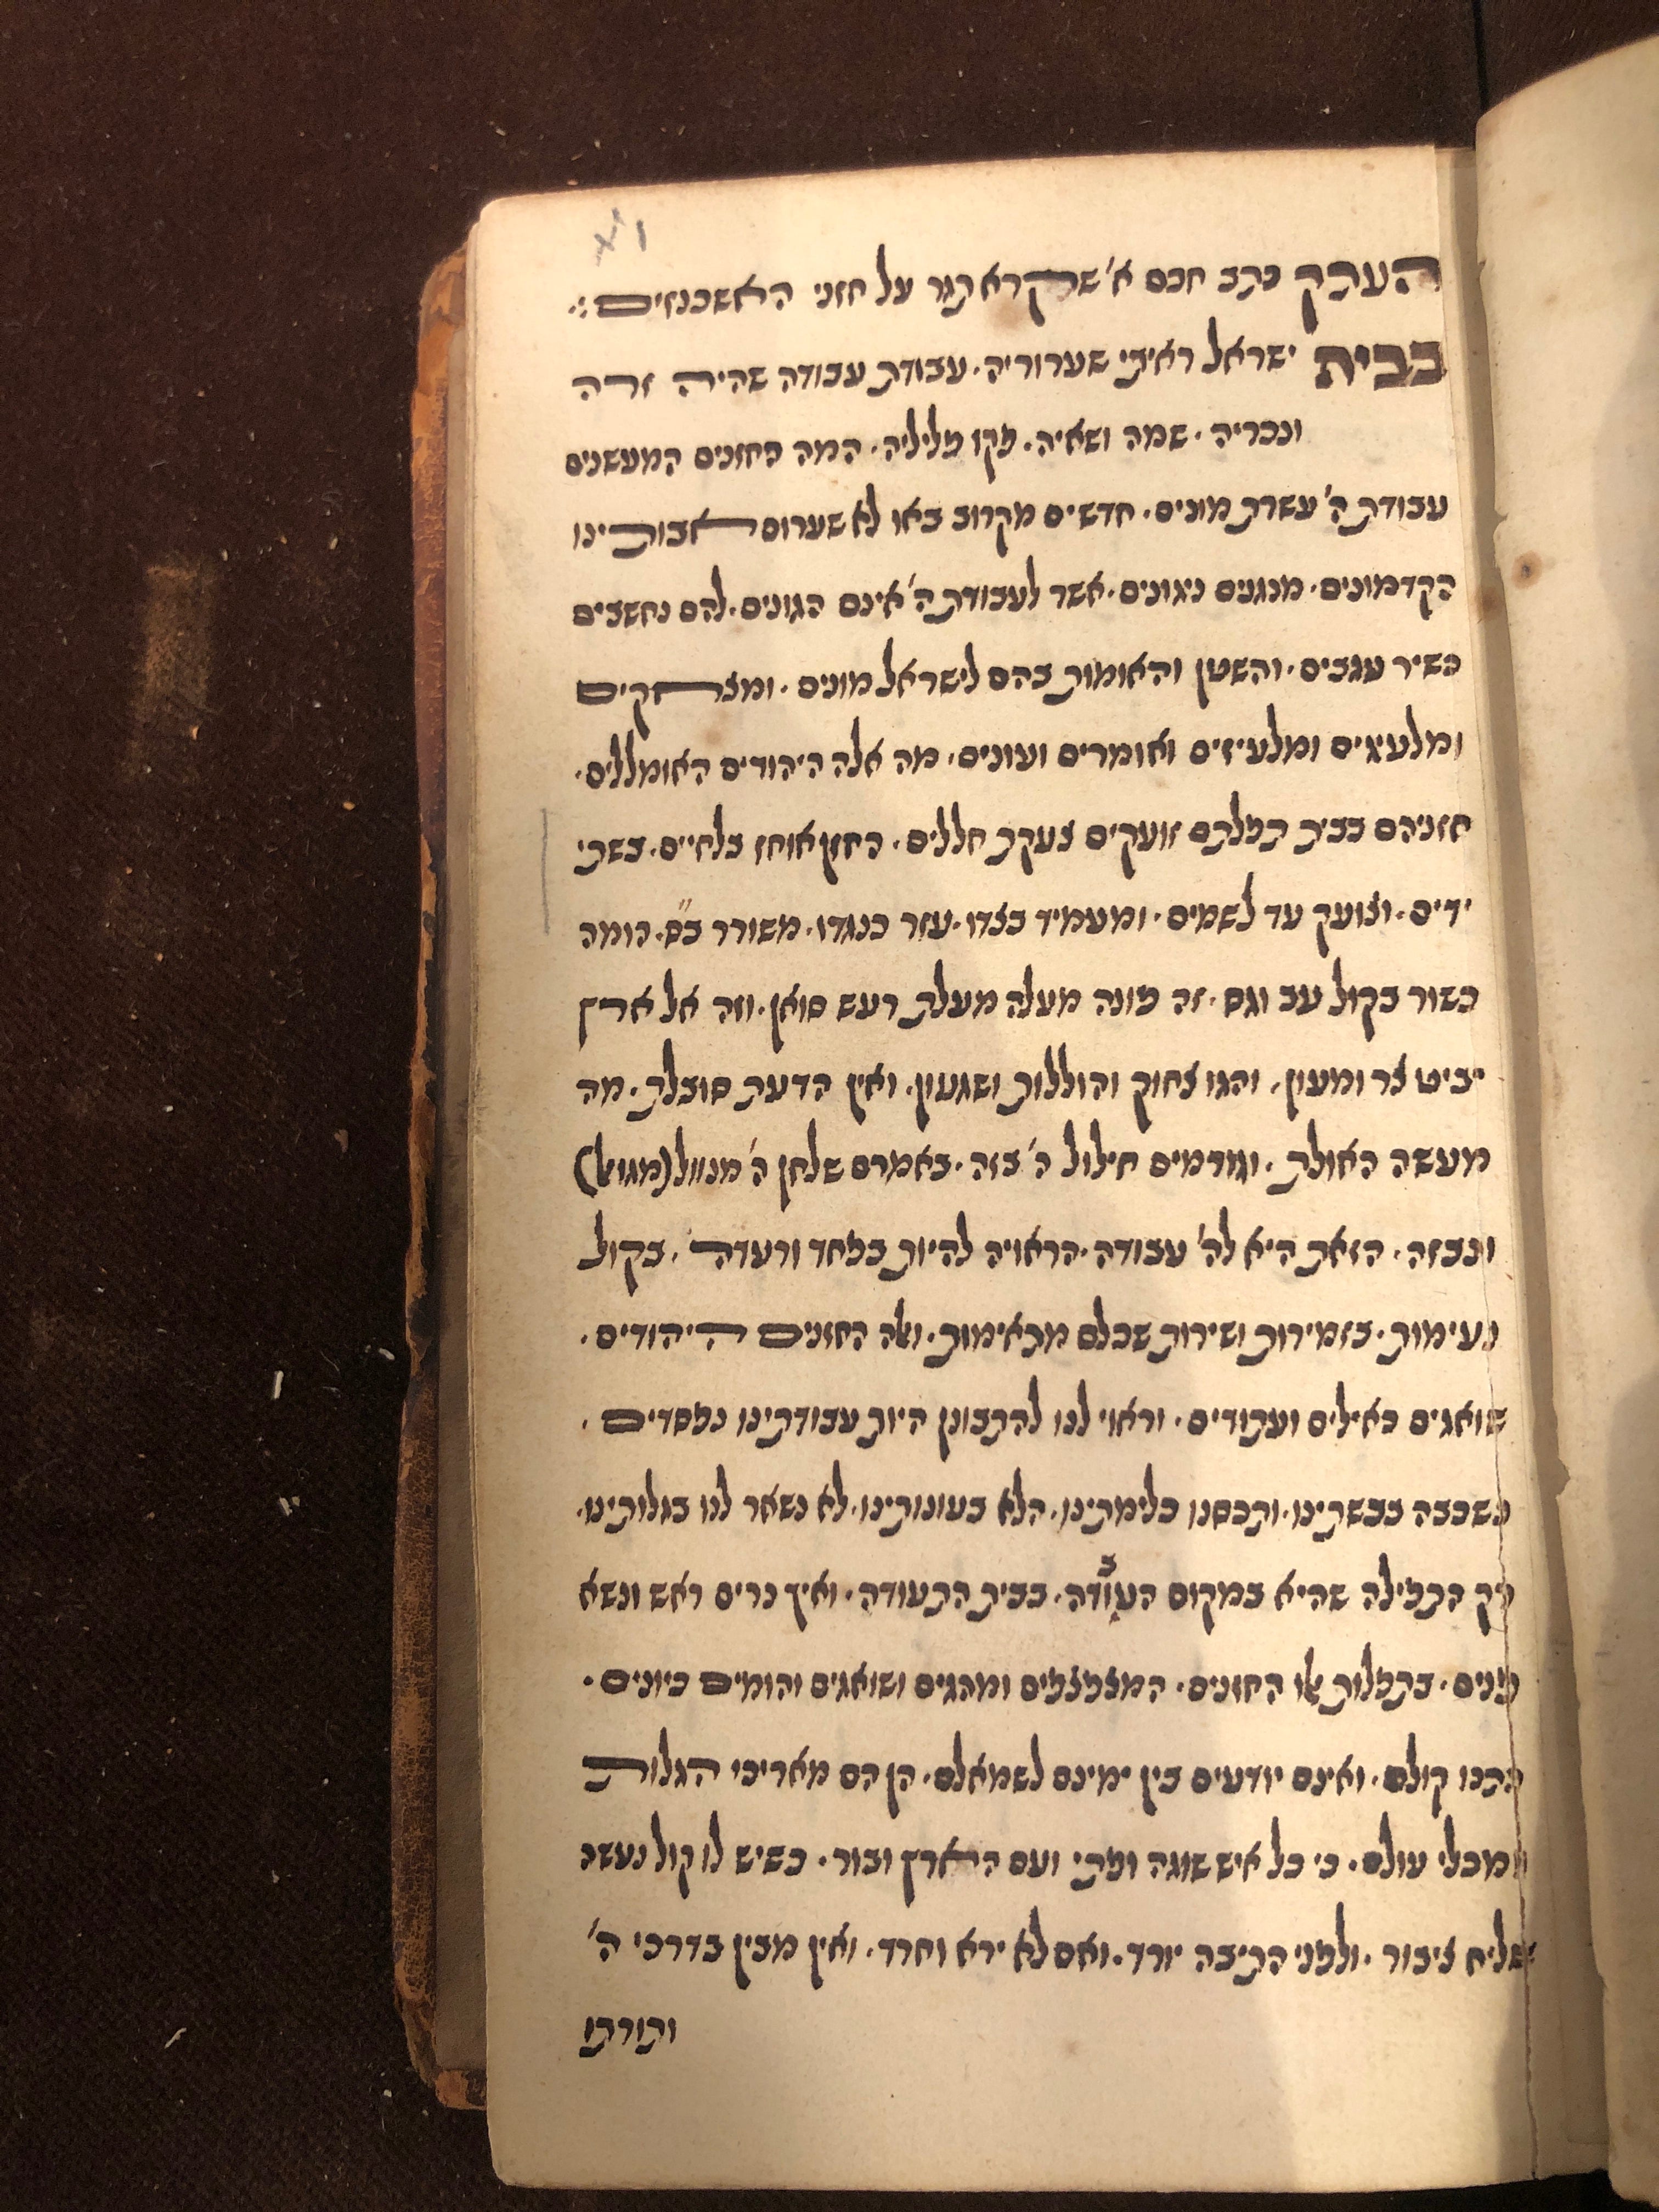 העתק כתב חכם א' שקרא תגר על חזני האשכנזים :·
בבית ישראל ראיתי שערוריה. עבודת עבודה שהיה זרה
ונכריה. שמה ושאיה. פקו פליליה. המה החזנים המעשנים
עבודת ה' עשרת מונים. חדשים מקרוב באו לא שערום אבותינו
הקדמונים. מנגנים ניגונים. אשר לעבודת ה' אינם הגונים. להם נחשבים
כשיר עגבים. והשטן והאומות בהם לישראל מונים. ומצחקים
ומלעיגים ומלעיזים ואומרים ועונים. מה אלה היהודים האומללים.
חזניהם בבית תפלתם זועקים צעקת חללים. החזן אוחז בלחיים. בשתי
ידים. וצועק עד לשמים. ומעמיד בצדו. עזר כנגדו. משורר ב"ס. הומה
כשור בקול עב וגס. זה פונה מעלה מעלת רעש סואן. וזה אל ארץ
יביט צר ומעון. והגו צחוק והוללות ושגעון. ואין הדעת סובלת. מה
מעשה האולת. וגורמים חילול ה' בזה. באמרם שלחן ה' מנוול (מגואל)
ונבזה. הזאת היא לה' עבודה. הראויה להיות בפחד ורעדה. בקול
נעימות. בזמירות ושירות שכלם מתאימות. ואלה החזנים היהודים.
שואגים כאילים ועתודים. וראוי לנו להתבונן היות עבודתינו נפסדים.
נשכבה בבשתינו. ותכסנו כלימתינו. הלא בעונותינו. לא נשאר לנו בגלותינו.
רק התפילה שהיא במקום העבודה. בבית התעודה. ואיך נרים ראש ונשא
פנים. בתפלות אלו החזנים. המצפצפים ומהגים ושואגים והומים כיונים.
יתנו קולם. ואינם יודעים בין ימינם לשמאלם. הן הם מאריכי הגלות
ומכלי עולם. כי כל איש שוגה ופתי ועם הארץ ובור. כשיש לו קול נעשה
שליח ציבור. ולפני התיבה יורד. ואם לא ירא וחרד. ואין מבין בדרכי ה'
ותורתו